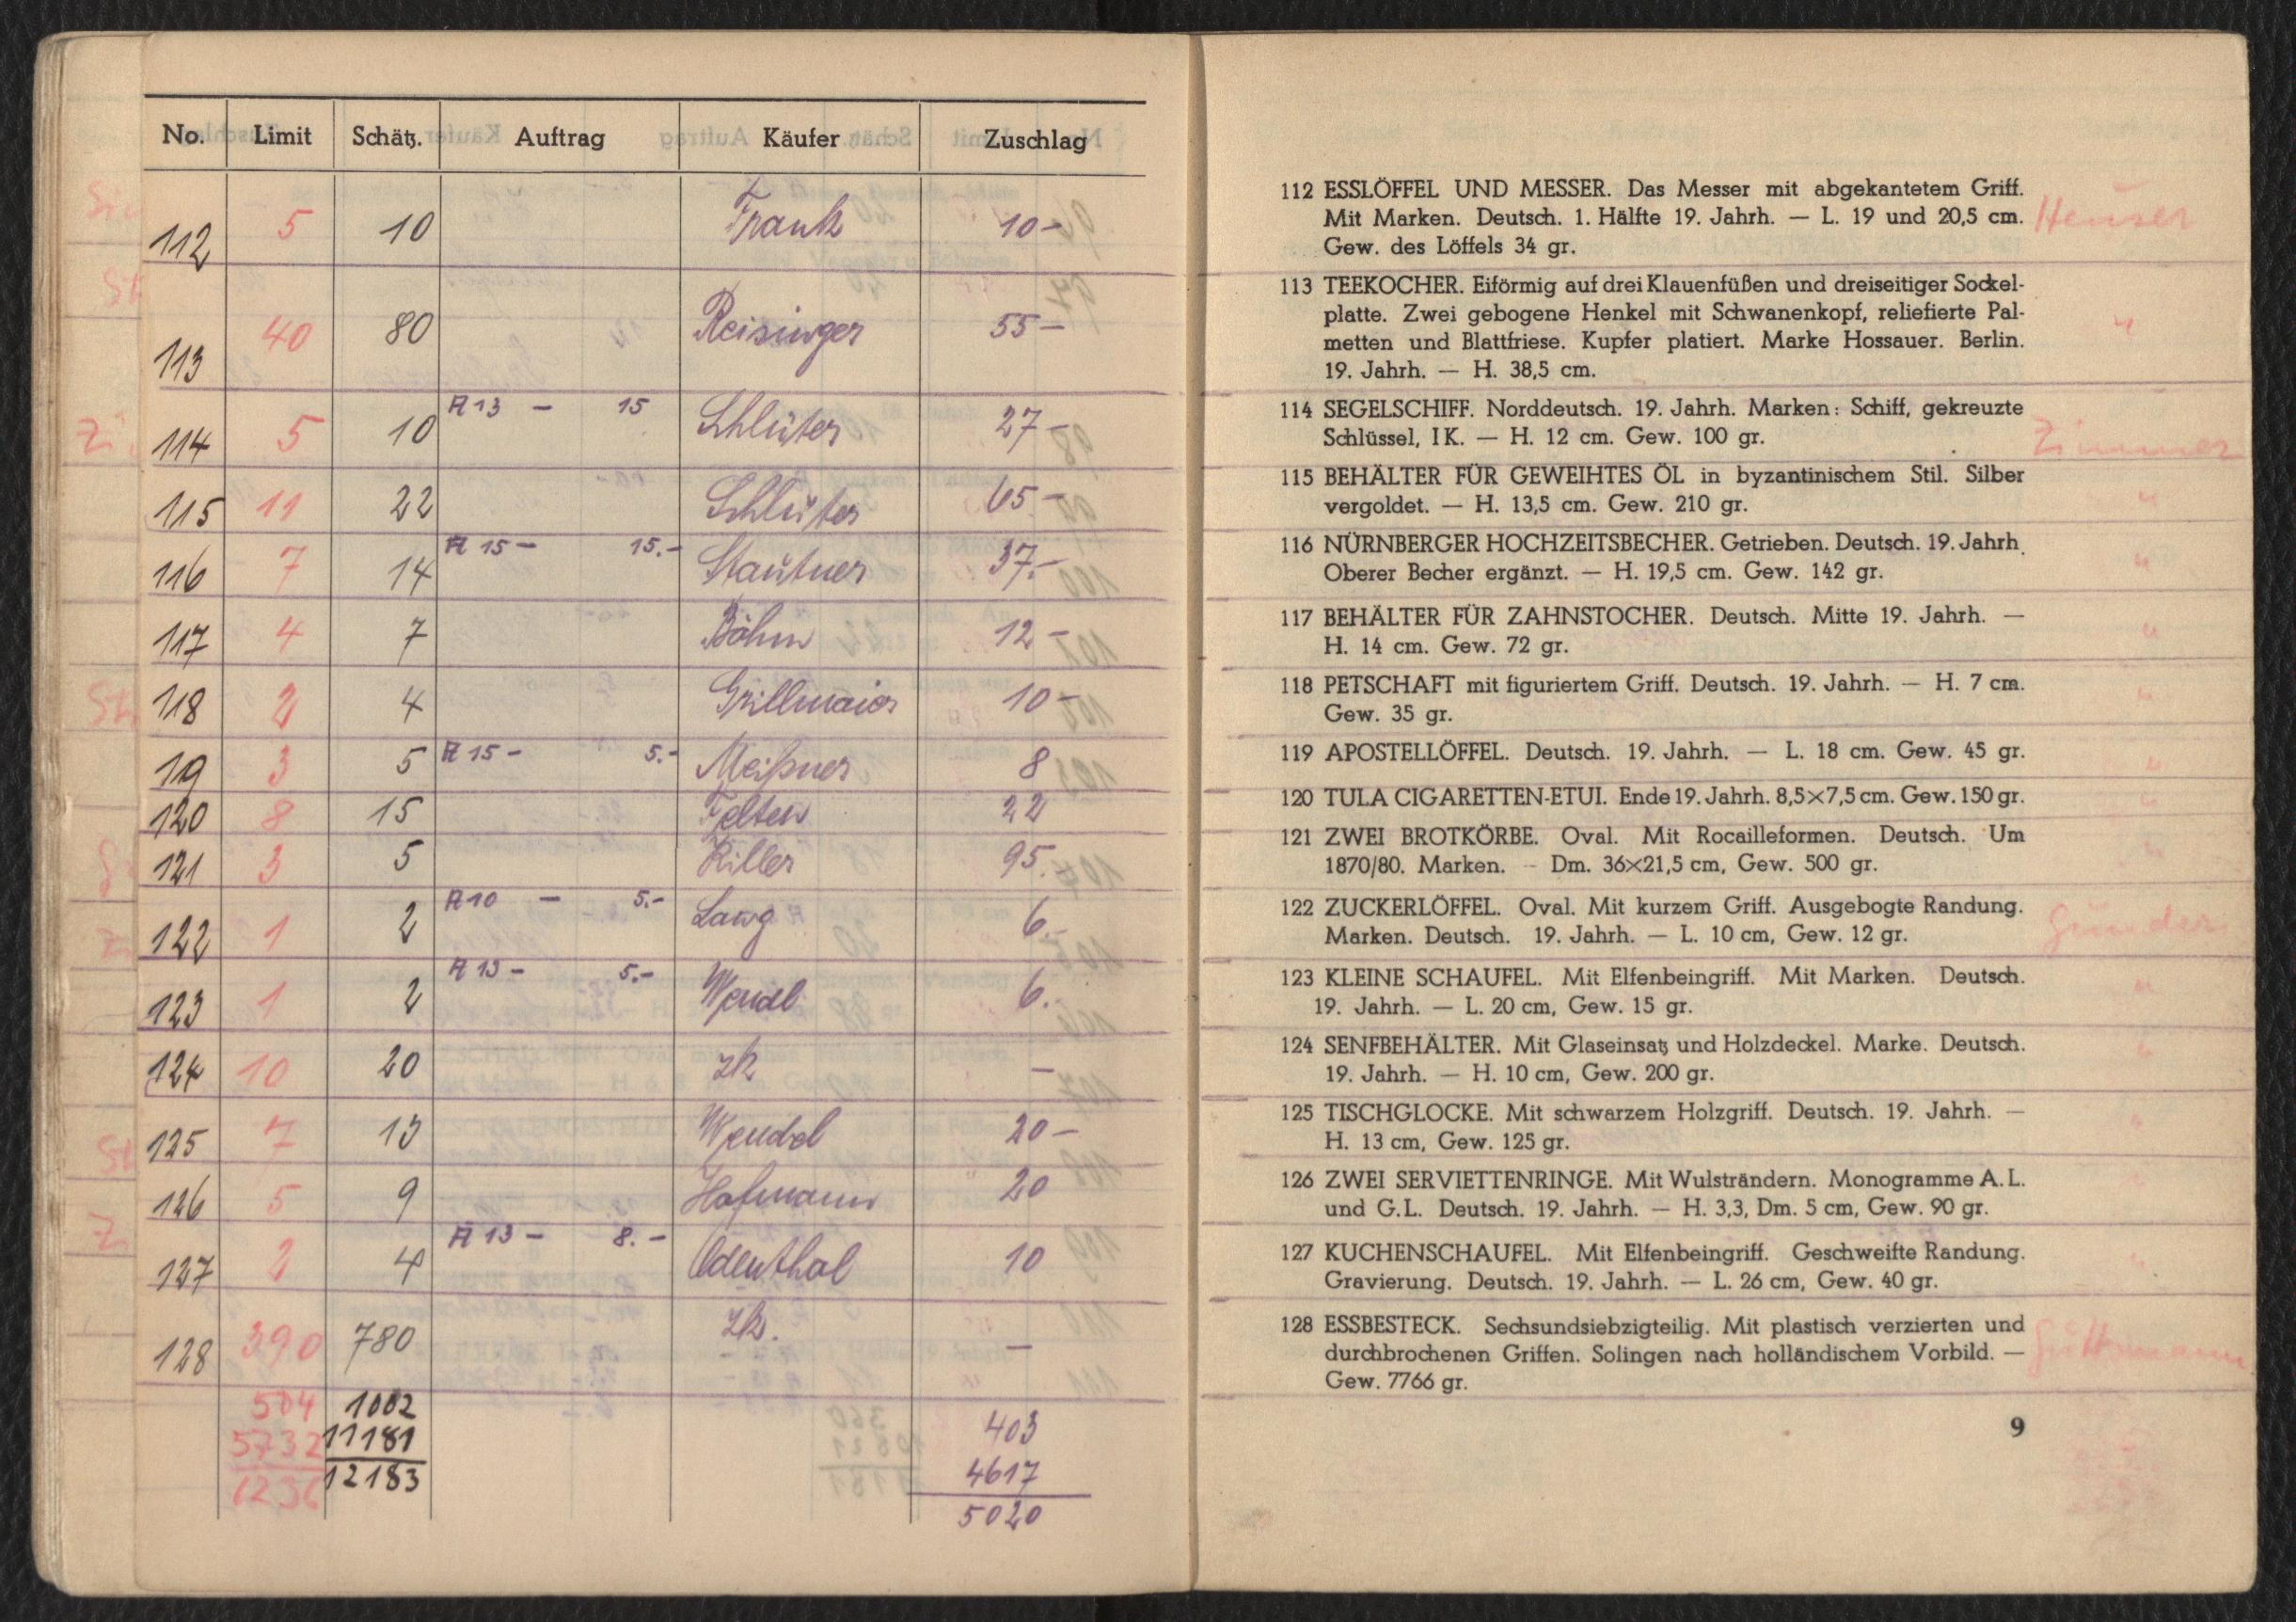 No. Limit Schätz. Auftrag Käufer Zuschlag
112 5 10 Frank 10-
113 40 80 Reisinger 55-
114 5 10 A 13 - 15 Schlüter 27-
115 11 22 Schlüter 65-
116 7 14 A 15- 15.- Stautner 37.-
117 4 7 Böhm 12-
118 2 4 Grillmaier 10-
119 3 5 A 15- 5.- Meißner 8
120 8 15 Felten 22
121 3 5 Killer 95.
122 1 2 A 10 - 5.- Lang 6.-
123 1 2 A 13- 5.- Wendl 6.
124 10 20 zk -
125 7 13 Wendel 20-
126 5 9 Hofmann 20
127 2 4 A 13- 8.- Odenthal 10
128 390 780 zk. -
504 1002 403
5732 11181 4617
6236 12183 5020
112 ESSLÖFFEL UND MESSER. Das Messer mit abgekantetem Griff.
Mit Marken. Deutsch. 1. Hälfte 19. Jahrh. — L. 19 und 20,5 cm. Heuser
Gew. des Löffels 34 gr.
113 TEEKOCHER. Eiförmig auf drei Klauenfüßen und dreiseitiger Sockel-
platte. Zwei gebogene Henkel mit Schwanenkopf, reliefierte Pal- "
metten und Blattfriese. Kupfer platiert. Marke Hossauer. Berlin.
19. Jahrh. — H. 38,5 cm.
114 SEGELSCHIFF. Norddeutsch. 19. Jahrh. Marken: Schiff, gekreuzte
Schlüssel, IK. — H. 12 cm. Gew. 100 gr. Zimmer
115 BEHÄLTER FÜR GEWEIHTES ÖL in byzantinischem Stil. Silber
vergoldet. — H. 13,5 cm. Gew. 210 gr. "
116 NÜRNBERGER HOCHZEITSBECHER. Getrieben. Deutsch. 19. Jahrh.
Oberer Becher ergänzt. — H. 19,5 cm. Gew. 142 gr. "
117 BEHÄLTER FÜR ZAHNSTOCHER. Deutsch. Mitte 19. Jahrh. —
H. 14 cm. Gew. 72 gr. "
118 PETSCHAFT mit figuriertem Griff. Deutsch. 19. Jahrh. — H. 7 cm. "
Gew. 35 gr.
119 APOSTELLÖFFEL. Deutsch. 19. Jahrh. — L. 18 cm. Gew. 45 gr. "
120 TULA CIGARETTEN-ETUI. Ende 19. Jahrh. 8,5×7,5 cm. Gew. 150 gr. "
121 ZWEI BROTKÖRBE. Oval. Mit Rocailleformen. Deutsch. Um "
1870/80. Marken. — Dm. 36×21,5 cm, Gew. 500 gr.
122 ZUCKERLÖFFEL. Oval. Mit kurzem Griff. Ausgebogte Randung.
Marken. Deutsch. 19. Jahrh. — L. 10 cm, Gew. 12 gr. Gunder
123 KLEINE SCHAUFEL. Mit Elfenbeingriff. Mit Marken. Deutsch. "
19. Jahrh. — L. 20 cm, Gew. 15 gr.
124 SENFBEHÄLTER. Mit Glaseinsatz und Holzdeckel. Marke. Deutsch. "
19. Jahrh. — H. 10 cm, Gew. 200 gr.
125 TISCHGLOCKE. Mit schwarzem Holzgriff. Deutsch. 19. Jahrh. — "
H. 13 cm, Gew. 125 gr.
126 ZWEI SERVIETTENRINGE. Mit Wulsträndern. Monogramme A. L. "
und G. L. Deutsch. 19. Jahrh. — H. 3,3, Dm. 5 cm, Gew. 90 gr.
127 KUCHENSCHAUFEL. Mit Elfenbeingriff. Geschweifte Randung. "
Gravierung. Deutsch. 19. Jahrh. — L. 26 cm, Gew. 40 gr.
128 ESSBESTECK. Sechsundsiebzigteilig. Mit plastisch verzierten und
durchbrochenen Griffen. Solingen nach holländischem Vorbild. — Guttmann
Gew. 7766 gr.
9